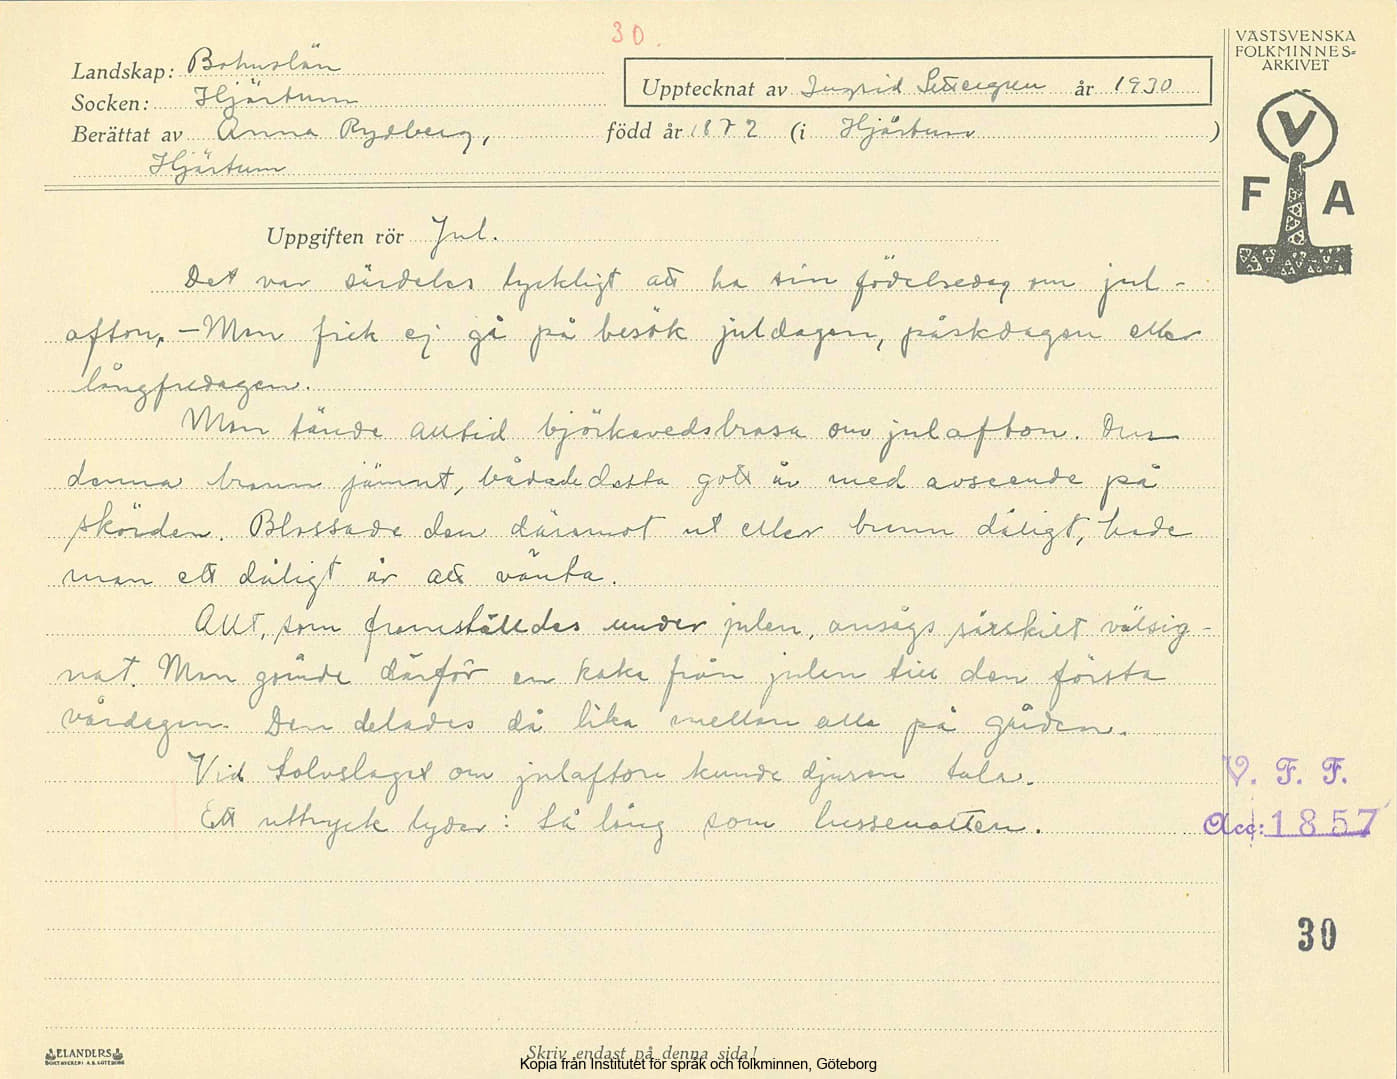 30.
VÄSTSVENSKA
FOLKMINNES=
ARKIVET
Landskap: Bohuslän
Socken: Hjärtum
Upptecknat av Ingrid år 1930
Berättat av Anna Rydberg, född år 1872 (i Hjärtum)
Hjärtum
V
F A
Uppgiften rör Jul.
Det var särdeles lyckligt att ha sin födelsedag om jul-
afton. - Man fick ej gå på besök juldagen, påskdagen eller
långfredagen.
Man tände alltid björkavedsbrasa om julafton. Om
denna brann jämnt, bådade detta gott år med avseende på
skörden. Blossade den däremot ut eller brann dåligt, hade
man ett dåligt år att vänta.
Allt, som framställdes under julen, ansågs särskilt välsig-
nat. Man gömde därför en kaka från julen till den första
vårdagen. Den delades då lika mellan alla på gården.
Vid tolvslaget om julafton kunde djuren tala.
Ett uttryck lyder: Så lång som lussenatten.
V. F. F.
Acc: 1857
30
ELANDERS
BOKTRYCKERI A.B. GÖTEBORG
Skriv endast på denna sida!
Kopia från Institutet för språk och folkminnen, Göteborg